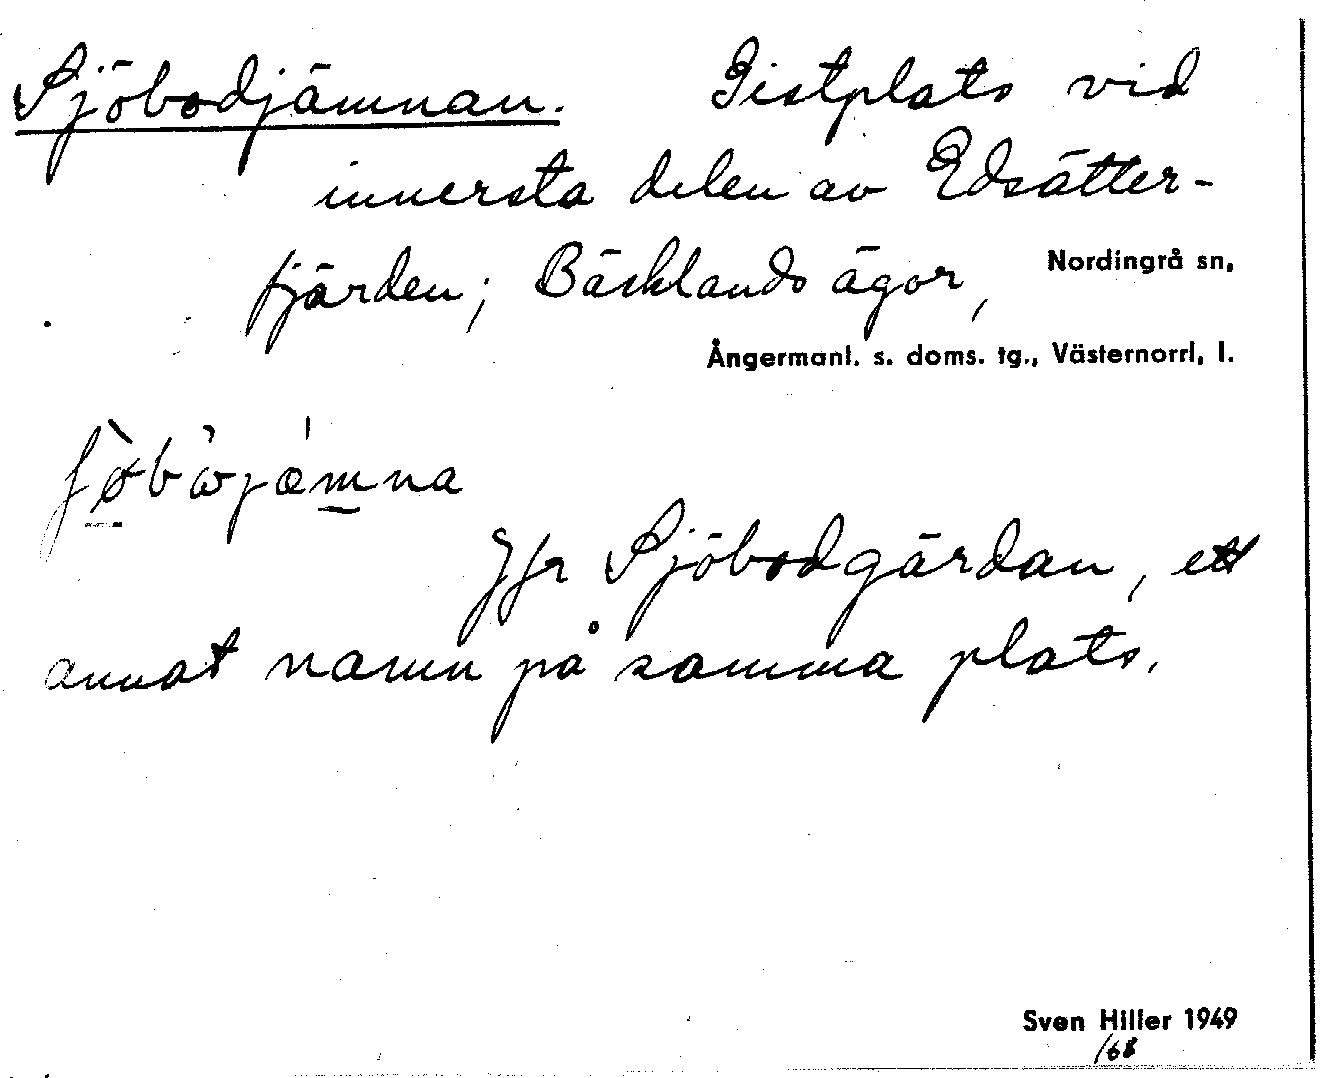 Sjöbodjämnan. Gistplats vid
innersta delen av Edsätter-
fjärden; Bäcklands ägor,
Nordingrå sn,
Ångermanl. s. doms. tg., Västernorrl, l.
Jfr Sjöbodgärdan, ett
annat namn på samma plats.
Sven Hiller 1949
/68